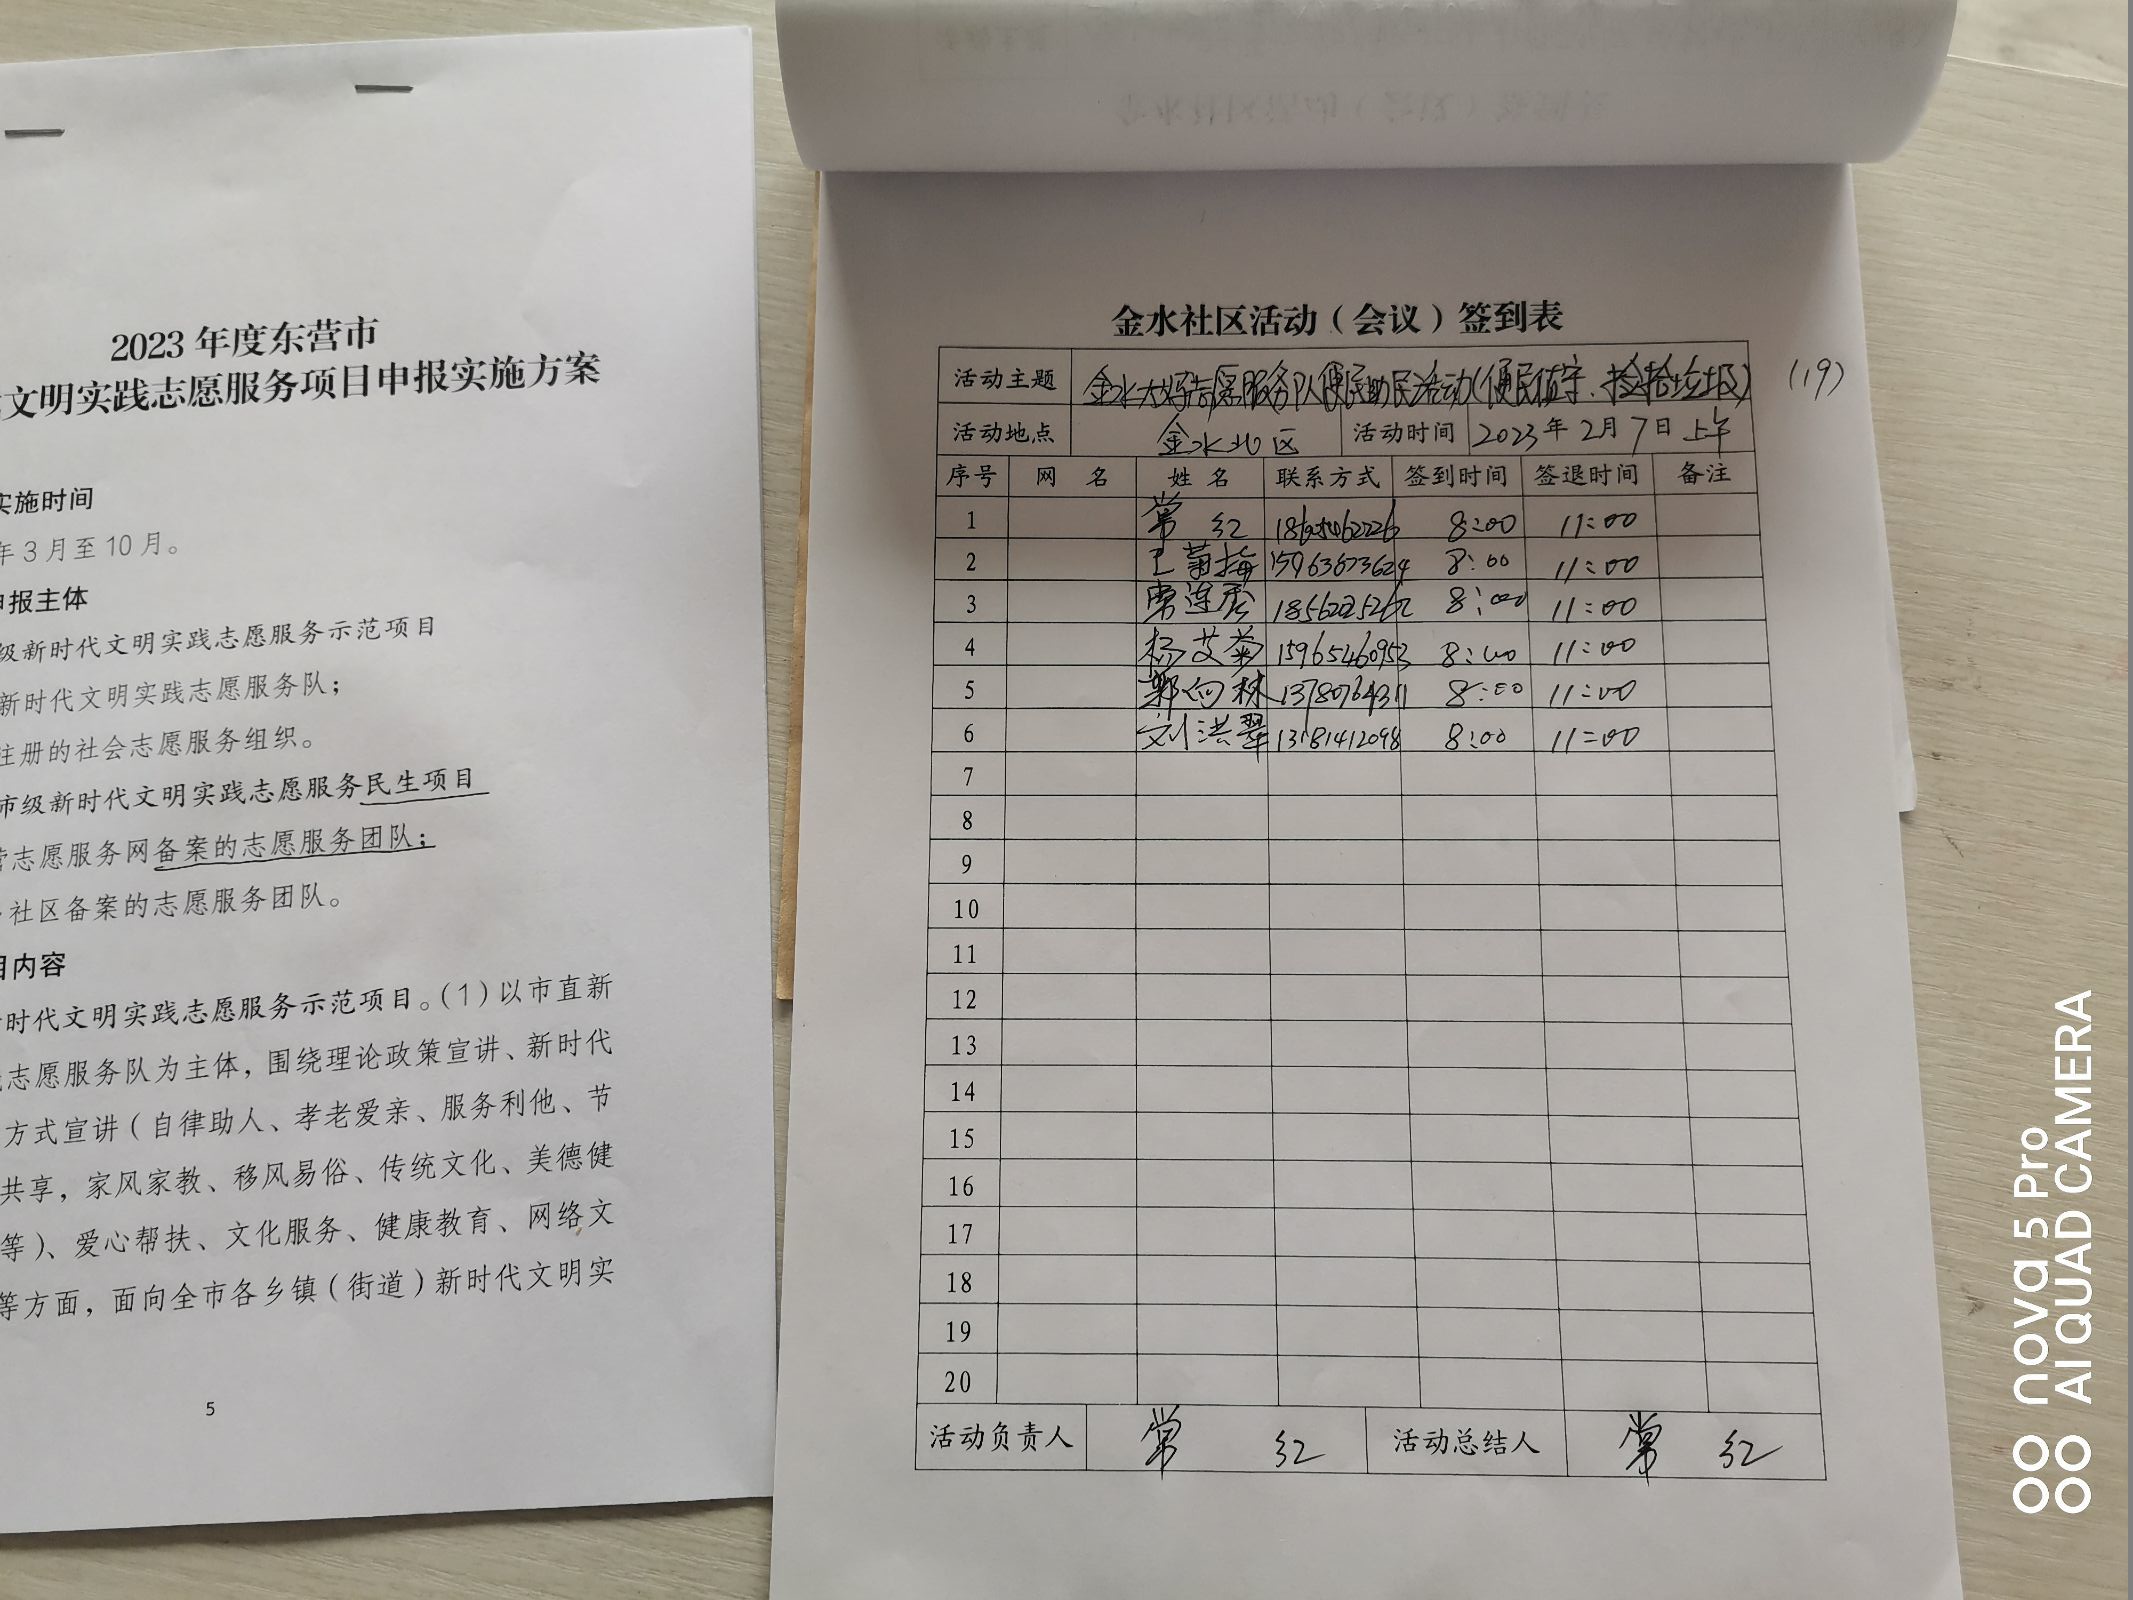 2023 年度东营市
文明实践志愿服务项目申报实施方案
实施时间
年3月至10月。
申报主体
级新时代文明实践志愿服务示范项目
新时代文明实践志愿服务队；
注册的社会志愿服务组织。
市级新时代文明实践志愿服务民生项目
营志愿服务网备案的志愿服务团队；
社区备案的志愿服务团队。
目内容
时代文明实践志愿服务示范项目。(1)以市直新
志愿服务队为主体，围绕理论政策宣讲、新时代
方式宣讲（自律助人、孝老爱亲、服务利他、节
共享，家风家教、移风易俗、传统文化、美德健
等）、爱心帮扶、文化服务、健康教育、网络文
等方面，面向全市各乡镇（街道）新时代文明实
5
金水社区活动（会议）签到表
活动主题 金水大嫂志愿服务队便民助民活动(便民值守、捡拾垃圾) (19)
活动地点 金水北区 活动时间 2023年2月7日上午
序号 网 名 姓 名 联系方式 签到时间 签退时间 备注
1 常 红 8:00 11:00
2 王菊梅 15963873624 8:00 11:00
3 8:00 11:00
4 杨艾菊 15965460953 8:00 11:00
5 郭向林 13780764311 8:00 11:00
6 刘洪翠 13181412098 8:00 11:00
7
8
9
10
11
12
13
14
15
16
17
18
19
20
活动负责人 常 红 活动总结人 常 红
nova 5 Pro
AI QUAD CAMERA